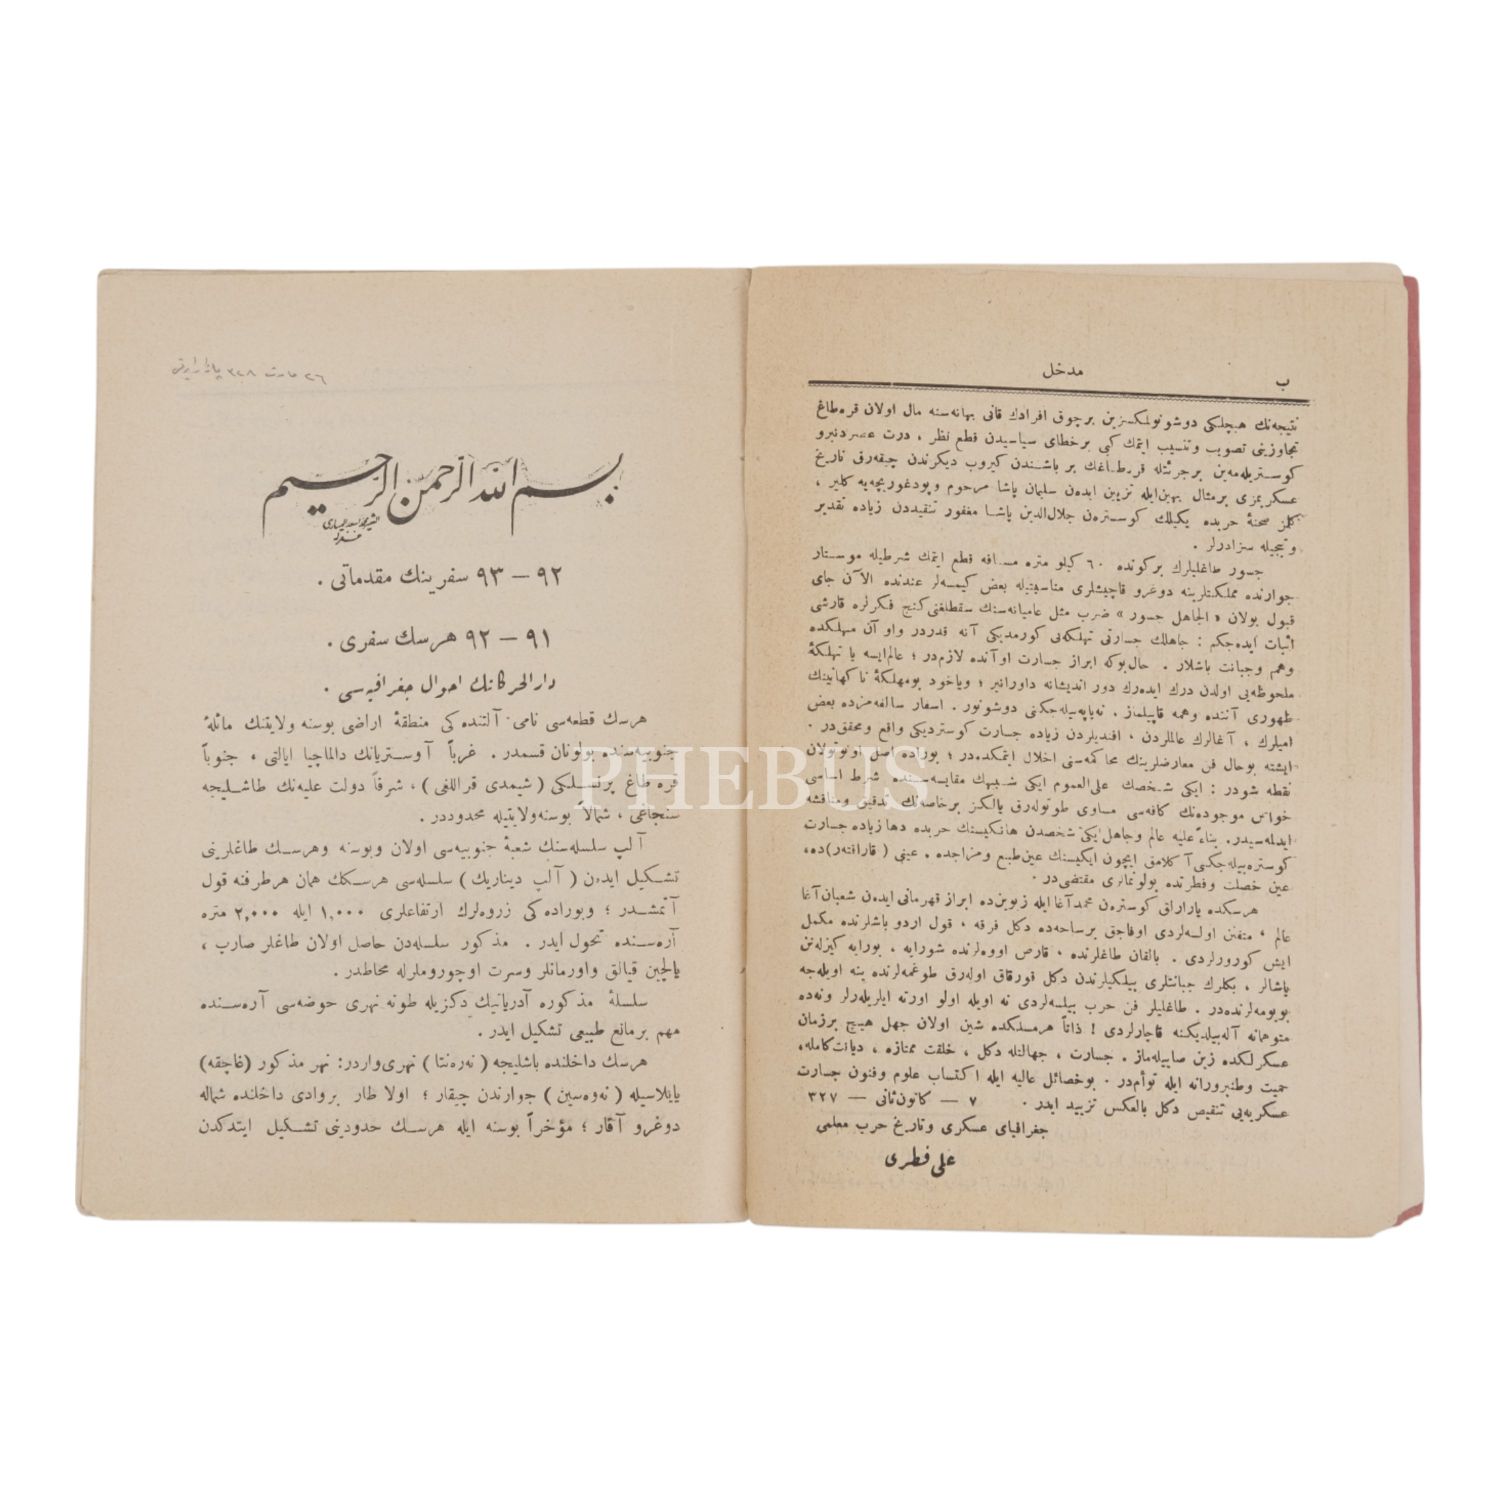 ب
مدخل
نتیجه‌نك هیچلکی دوشونولمکسزین برچوق افرادك قانی بهانه‌سنه مال اولان قره‌طاغ
تجاوزینی تصویب وتنسیب ایتمك کبی برخطای سیاسیدن قطع نظر ، درت عصردنبرو
کوستریله‌مه‌ین برجرئتله قره‌طاغك بر باشندن کیروب دیکرندن چیقه‌رق تاریخ
عسکریمزی برمثال بهین‌ایله تزیین ایده‌ن سلیمان پاشا مرحوم وپودغوریچه‌یه کلیر ،
کلمز صحنهٔ حربده یکیلك کوستره‌ن جلال‌الدین پاشا مغفور تنقیددن زیاده تقدیر
وتبجیله سزادرلر .
جسور طاغلیلرك برکونده ٦٠ کیلو متره مسافه قطع ایتمك شرطیله موستار
جوارنده مملکتلرینه دوغرو قاچیشلری مناسبتیله بعض کیمسه‌لر عندنده الآن جای
قبول بولان « الجاهل جسور » ضرب مثل عامیانه‌سنك سقطلغنی کنج فکرلره قارشی
اثبات ایده‌جکم : جاهلك جسارتی تهلکه‌یی کورمدیکی آنه قدردر واو آن مهلکده
وهم وجبانت باشلار . حال‌بوکه ابراز جسارت اوآنده لازم‌در ؛ عالم‌ایسه یا تهلکهٔ
ملحوظه‌یی اولدن درك ایده‌رك دور اندیشانه داورانیر ؛ ویاخود بومهلکهٔ ناکهانینك
ظهوری آننده وهمه قاپیلماز . نه‌یاپه‌بیله‌جکنی دوشونور . اسفار سالفه‌مزده بعض
امیلرك ، آغالرك عالملردن ، افندیلردن زیاده جسارت کوستردیکی واقع ومحقق‌در .
ایشته بوحال فن معارضلرینك محاکمه‌سنی اخلال ایتمکده‌در ؛ بوراده اصل اونوتولان
نقطه شودر : ایکی شخصك علی‌العموم ایکی شبیهك مقایسه‌سنده شرط اساسی
خواص موجوده‌نك کافه‌سی مساوی طوتوله‌رق یالکز برخاصه‌نك تدقیق ومناقشه
ایدلمه‌سیدر. بناءً علیه عالم وجاهل ایکی شخصدن هانکیسنك حربده دها زیاده جسارت
کوستره‌بیله‌جکنی آکلامق ایچون ایکیسنك عین‌طبع ومزاجده . عینی ( قارافته‌ر)ده،
عین خصلت وفطرتده بولونمالری مقتضی‌در .
هرسکده یارارلق کوستره‌ن محمدآغا ایله زنوین‌ده ابراز قهرمانی ایده‌ن شعبان‌آغا
عالم ، متفنن اولسه‌لردی اوفاجق برساحه‌ده دکل فرقه ، قول اردو باشلرنده مکمل
ایش کورورلردی . بالقان طاغلرنده ، قارص اووه‌لرنده شورایه . بورایه کیزله‌نن
پاشالر ، بکلرك جبانتلری بیلکیلرندن دکل قورقاق اوله‌رق طوغمه‌لرنده ینه اویله‌جه
بویومه‌لرنده‌در . طاغلیلر فن حرب بیلسه‌لردی نه اویله اولو اورته ایلریله‌رلر ونه‌ده
متوهمانه آله‌بیلدیکنه قاچارلردی ! ذاتاً هرمسلکده شین اولان جهل هیچ برزمان
عسکرلکده زین صاییله‌ماز . جسارت ، جهالتله دکل ، خلقت ممتازه ، دیانت‌کامله،
حمیت وطنپرورانه ایله توأم‌در . بوخصائل عالیه ایله اکتساب علوم وفنون جسارت
عسکریه‌یی تنقیص دکل بالعکس تزیید ایدر .   ٧ — کانون‌ثانی — ٣٢٧
جغرافیای عسکری وتاریخ حرب معلمی
علی فطری
٢٦ مارت ٣٢٨
بسم الله الرحمن الرحیم
٩٢ – ٩٣ سفرینك مقدماتی .
٩١ – ٩٢ هرسك سفری .
دارالحرکاتك احوال جغرافیه‌سی .
هرسك قطعه‌سی نامی آلتنده کی منطقهٔ اراضی بوسنه ولایتنك مائلهٔ
جنوبیه‌سنده بولونان قسمدر . غرباً آوستریانك دالماچیا ایالتی ، جنوباً
قره طاغ پرنسلکی ( شیمدی قراللغی ) ، شرقاً دولت علیه‌نك طاشلیجه
سنجاغی ، شمالاً بوسنه ولایتیله محدوددر .
آلپ سلسله‌سنك شعبهٔ جنوبیه‌سی اولان وبوسنه وهرسك طاغلرینی
تشکیل ایدن ( آلپ دیناریك ) سلسله‌سی هرسکك همان هرطرفنه قول
آتمشدر ؛ وبوراده کی زروه‌لرك ارتفاعلری ١,٠٠٠ ایله ٢,٠٠٠ متره
آره‌سنده تحول ایدر . مذکور سلسله‌دن حاصل اولان طاغلر صارپ ،
یالچین قیالق واورمانلر وسرت اوچوروملرله محاطدر .
سلسلهٔ مذکوره آدریاتیك دکزیله طونه نهری حوضه‌سی آره‌سنده
مهم برمانع طبیعی تشکیل ایدر .
هرسك داخلنده باشلیجه ( نه‌ره‌نتا ) نهری واردر: نهر مذکور (غاچقه)
یایلاسیله ( نه‌وه‌سین ) جوارندن چیقار ؛ اولا طار بروادی داخلنده شماله
دوغرو آقار ؛ مؤخراً بوسنه ایله هرسك حدودینی تشکیل ایتدکدن
PHEBUS